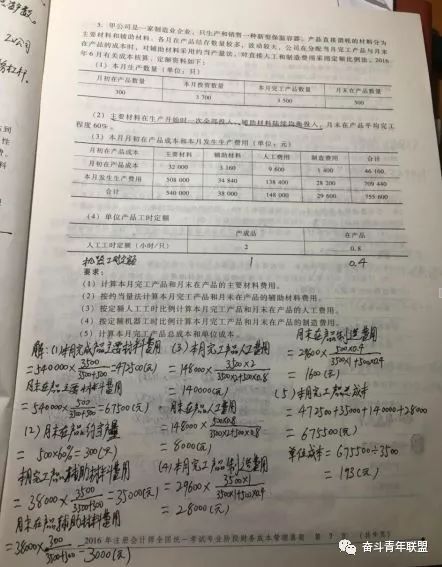 3. 甲公司是一家制造业企业，只生产和销售一种新型保温容器。产品直接消耗的材料分为
主要材料和辅助材料。各月在产品结存数量较多，波动较大，公司在分配当月完工产品与月末
在产品的成本时，对辅助材料采用约当产量法，对直接人工和制造费用采用定额比例法。2016
年6月有关成本核算、定额资料如下：
(1) 本月生产数量（单位：只）
月初在产品数量 本月投产数量 本月完工产品数量 月末在产品数量
300 3 700 3 500 500
(2) 主要材料在生产开始时一次全部投入，辅助材料陆续均衡投入，月末在产品平均完工
程度60%。
(3) 本月月初在产品成本和本月发生生产费用（单位：元）
主要材料 辅助材料 人工费用 制造费用 合计
月初在产品成本 32 000 3 160 9 600 1 400 46 160
本月发生生产费用 508 000 34 840 138 400 28 200 709 440
合计 540 000 38 000 148 000 29 600 755 600
(4) 单位产品工时定额
产成品 在产品
人工工时定额（小时/只） 2 0.8
机器工时定额 1 0.4
要求：
(1) 计算本月完工产品和月末在产品的主要材料费用。
(2) 按约当量法计算本月完工产品和月末在产品的辅助材料费用。
(3) 按定额人工工时比例计算本月完工产品和月末在产品的人工费用。
(4) 按定额机器工时比例计算本月完工产品和月末在产品的制造费用。
(5) 计算本月完工产品总成本和单位成本。
解：(1) 本月完成产品主要材料费用
=540000×3500/3500+500=472500(元)
月末在产品主要材料费用
=540000×500/3500+500=67500(元)
(2) 月末在产品约当产量
=500×60%=300(只)
本月完工产品辅助材料费用
=38000×3500/3500+300=35000(元)
月末在产品辅助材料费用
=38000×300/3500+300=3000(元)
(3) 本月完工产品人工费用
=148000×3500×2/3500×2+500×0.8
=140000(元)
月末在产品人工费用
=148000×500×0.8/3500×2+500×0.8
=8000(元)
(4) 本月完工产品制造费用
=29600×3500×1/3500×1+500×0.4
=28000(元)
月末在产品制造费用
=29600×500×0.4/3500×1+500×0.4
=1600(元)
(5) 本月完工产品总成本
=472500+35000+140000+28000
=675500(元)
单位成本=675500÷3500
=193(元)
2016年注册会计师全国统一考试专业阶段财务成本管理真题 第 7 页 (共 9 页)
奋斗青年联盟